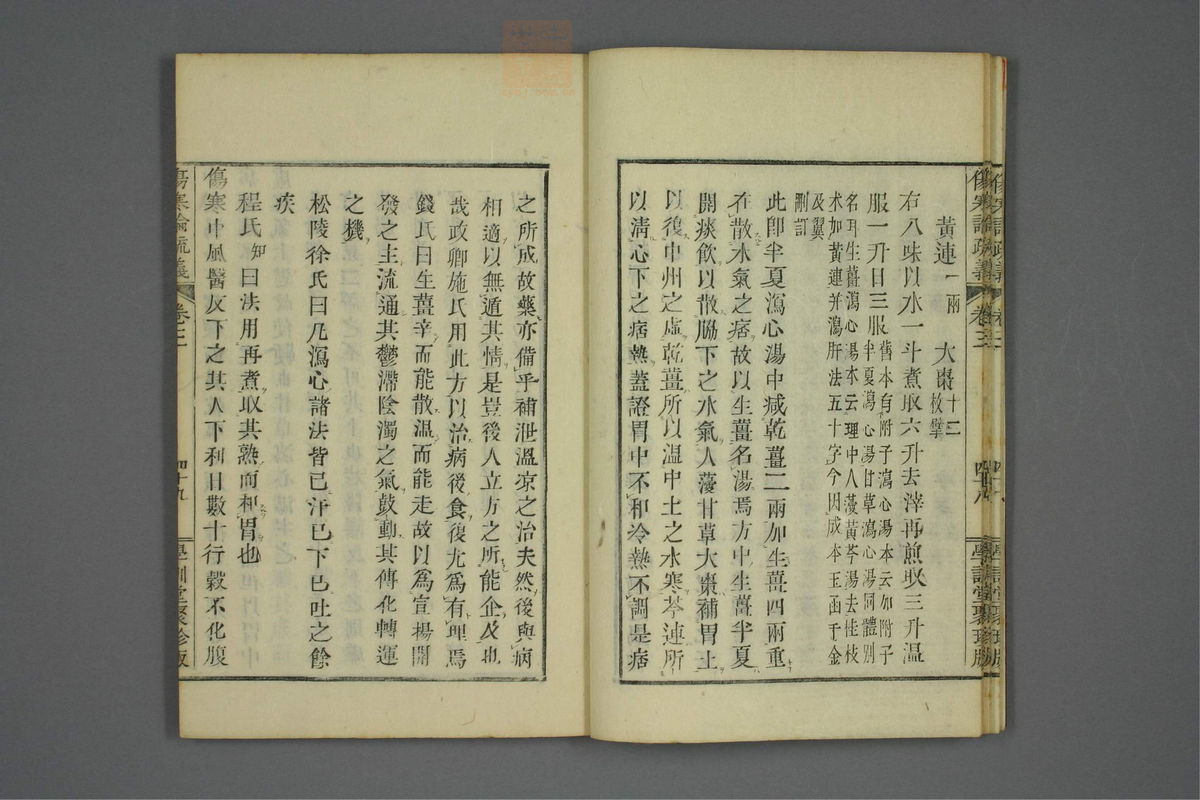 黃連一兩 大棗十二枚擘
右八味以水一斗煮取六升去滓再煎取三升溫
服一升日三服舊本有附子瀉心湯本云加附子
半夏瀉心湯甘草瀉心湯同體別
名耳生薑瀉心湯本云理中人薓黃芩湯去桂枝
朮加黃連幷瀉肝法五十字今因成本玉函千金
及翼
刪訂
此卽半夏瀉心湯中減乾薑二兩加生薑四兩重
在散水氣之痞故以生薑名湯焉方中生薑半夏
開痰飲以散脇下之水氣人薓甘草大棗補胃土
以復中州之虛乾薑所以溫中土之水寒芩連所
以淸心下之痞熱蓋證胃中不和冷熱不調是痞
之所成故藥亦備乎補泄溫凉之治夫然後與病
相適以無遁其情是豈後人立方之所能企及也
哉政卿施氏用此方以治病後食復尤爲有理焉
錢氏曰生薑辛而能散溫而能走故以爲宣楊開
發之主流通其鬱滯陰濁之氣鼓動其傳化轉運
之機
松陵徐氏曰凡瀉心諸法皆已汗已下已吐之餘
疾
程氏知曰法用再煮取其熟而和胃也
傷寒中風醫反下之其人下利日數十行穀不化腹
傷寒論疏義 卷三 四十八 學訓堂聚珍版
傷寒論疏義 卷三 四十九 學訓堂聚珍版